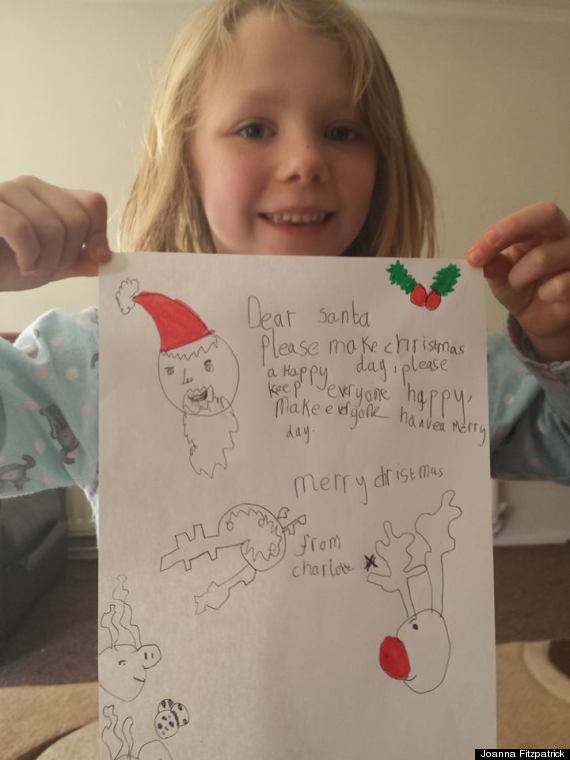 Dear santa
please make christmas
a Happy day, please
keep everyone happy,
make everyone hanvea merry
day.
merry christmas
from
charlotte
Joanna Fitzpatrick